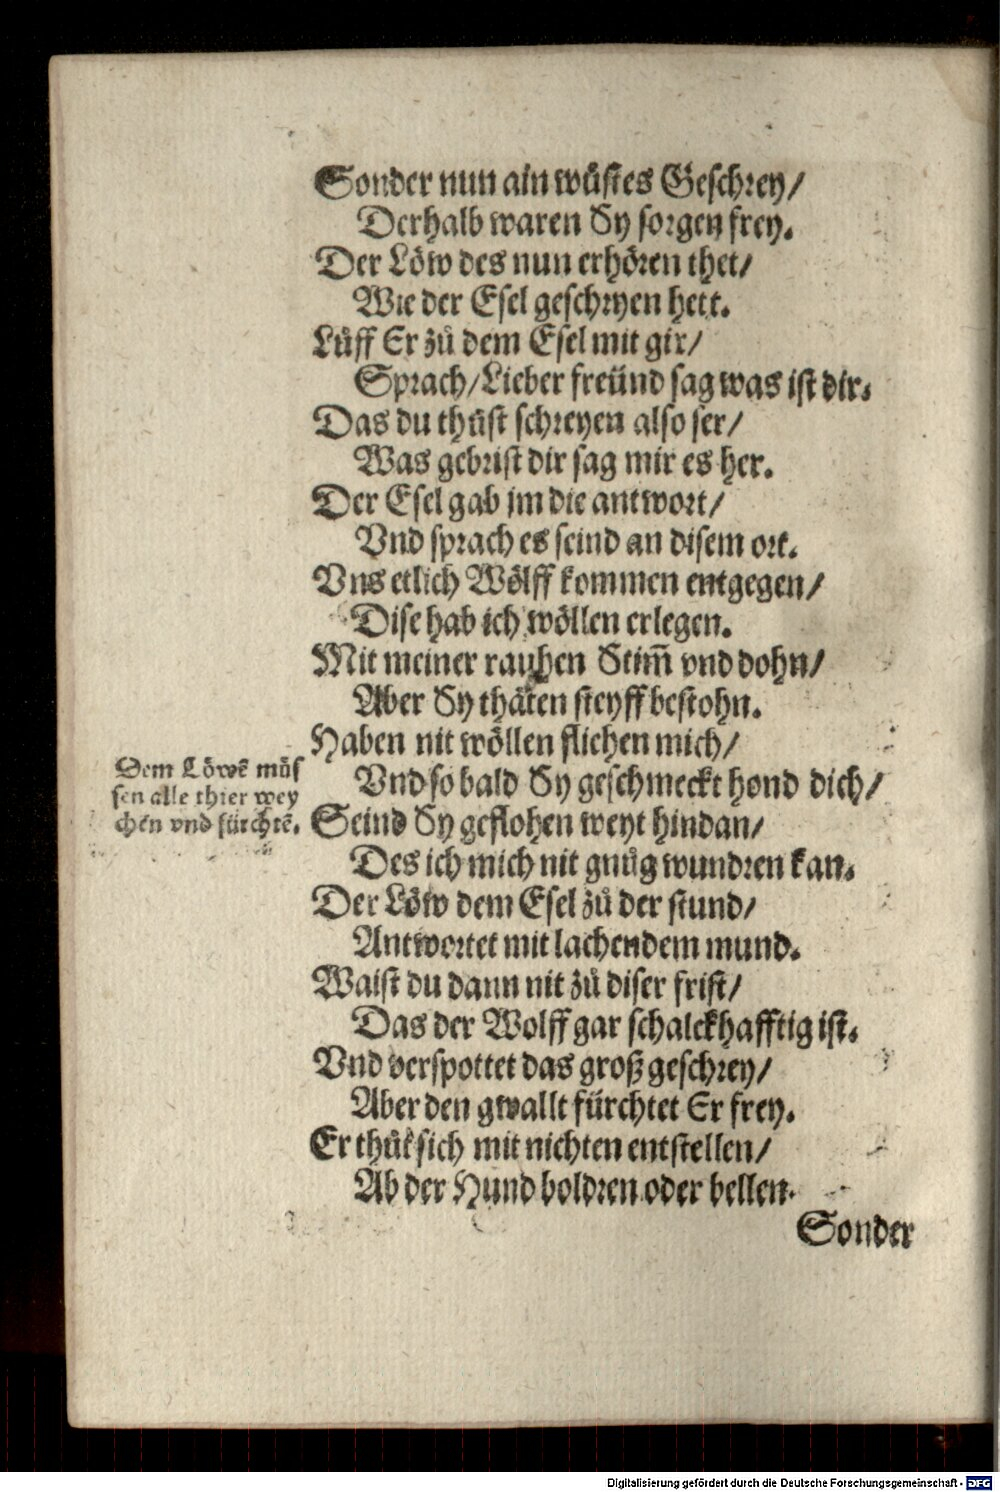 Sonder nun ain wůstes Geschrey/
Derhalb waren Sy sorgen frey.
Der Löw des nun erhören thet/
Wie der Esel geschryen hett.
Lůff Er zů dem Esel mit gir/
Sprach/Lieber freünd sag was ist dir.
Das du thůst schreyen also ser/
Was gebrist dir sag mir es her.
Der Esel gab jm die antwort/
Vnd sprach es seind an disem ort.
Vns etlich Wölff kommen entgegen/
Dise hab ich wöllen erlegen.
Mit meiner rauhen Stim̃ vnd dohn/
Aber Sy thäten steyff bestohn.
Haben nit wöllen fliehen mich/
Dem Löwẽ müs
sen alle thier wey
chen vnd fürchtẽ.
Vnd so bald Sy geschmeckt hond dich/
Seind Sy geflohen weyt hindan/
Des ich mich nit gnůg wundren kan.
Der Löw dem Esel zů der stund/
Antwortet mit lachendem mund.
Waist du dann nit zů diser frist/
Das der Wolff gar schalckhafftig ist.
Vnd verspottet das groß geschrey/
Aber den gwallt fürchtet Er frey.
Er thůt sich mit nichten entstellen/
Ab der Hund boldren oder bellen.
Sonder
Digitalisierung gefördert durch die Deutsche Forschungsgemeinschaft - DFG